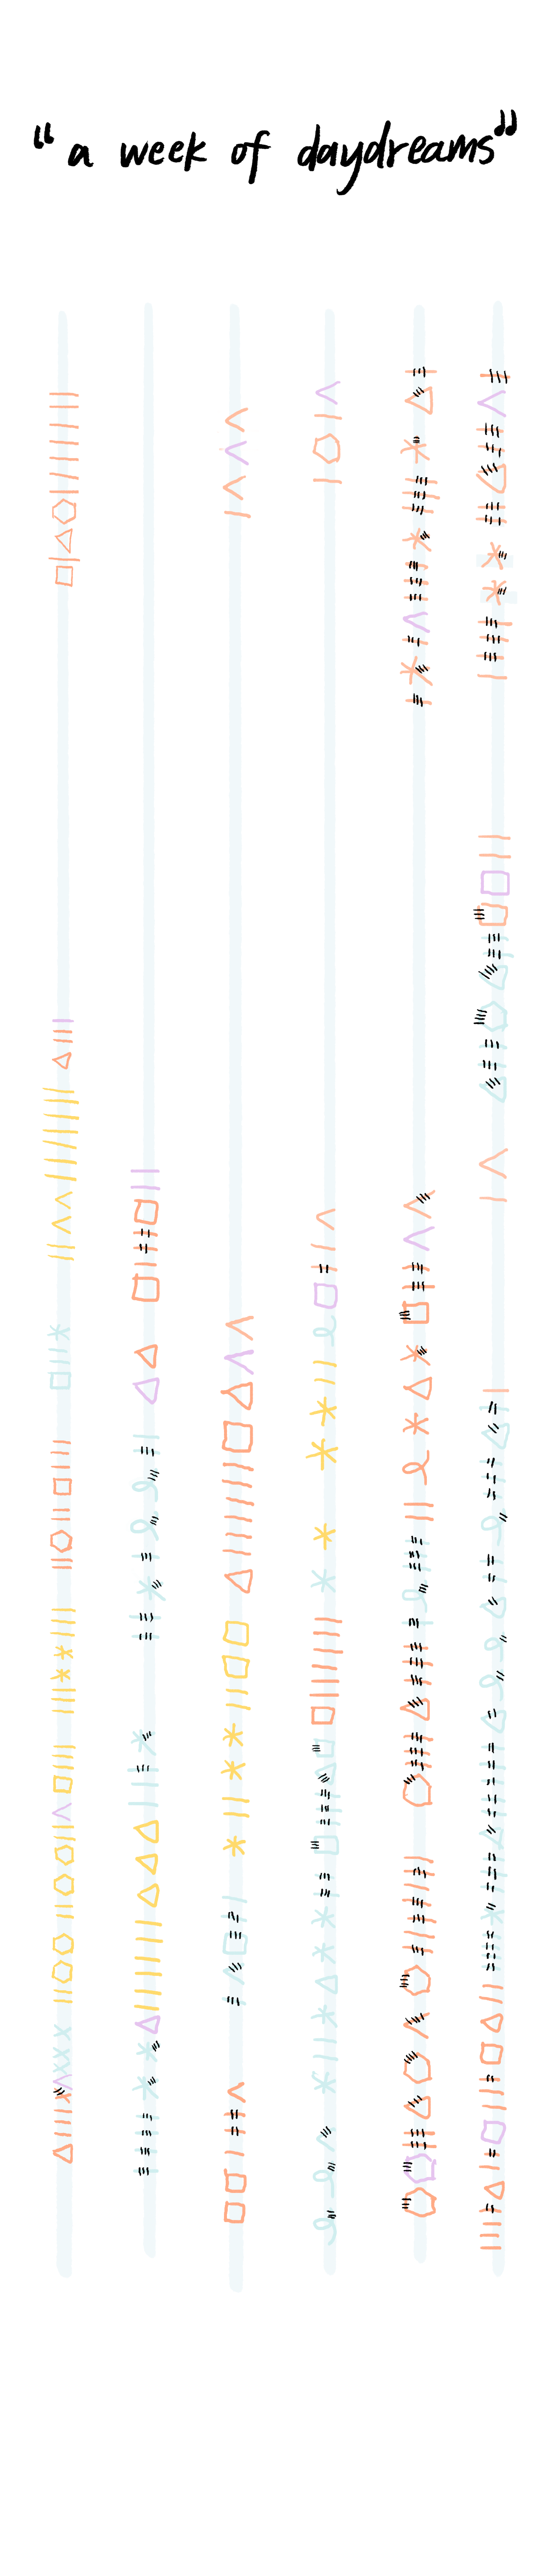 "a week of daydreams"